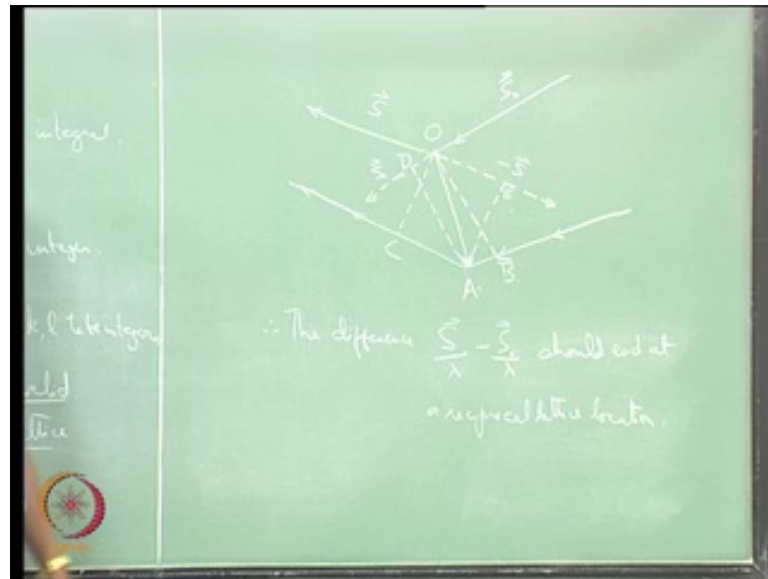 integral.
integer.
k, l to be integers
valid
lattice
S⃗
S⃗₀
O
D
S⃗
-S⃗
E
C
B
A
∴ The difference S⃗/λ - S⃗₀/λ should end at
a reciprocal lattice location.